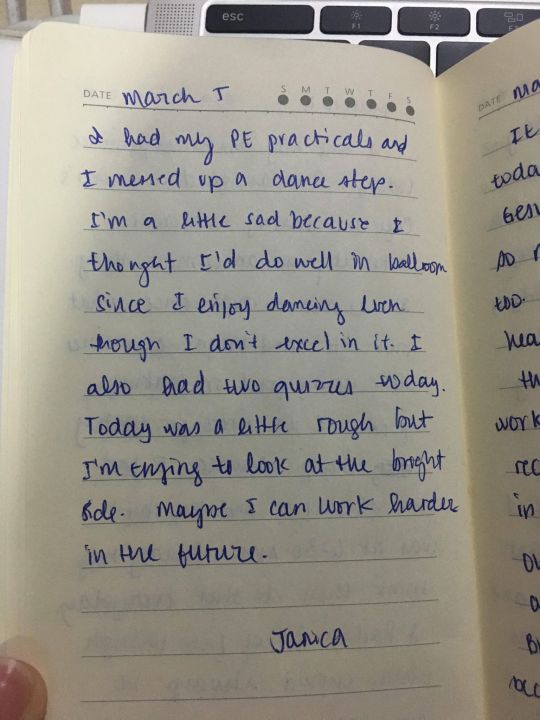 esc
F1
F2
DATE March 5
S M T W T F S
I had my PE practicals and
I messed up a dance step.
I'm a little sad because I
thought I'd do well in balloom
since I enjoy dancing even
though I don't excel in it. I
also had two quizzes today.
Today was a little rough but
I'm trying to look at the bright
side. Maybe I can work harder
in the future.
Janica
DATE
It
too.
work
in